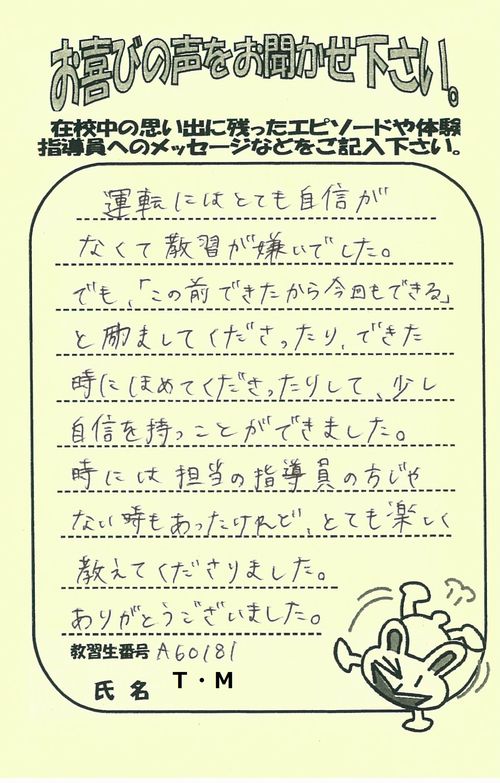 お喜びの声をお聞かせ下さい。
在校中の思い出に残ったエピソードや体験
指導員へのメッセージなどをご記入下さい。
運転にはとても自信が
なくて教習が嫌いでした。
でも、「この前できたから今回もできる」
と励ましてくださったり、できた
時にほめてくださったりして、少し
自信を持つことができました。
時には担当の指導員の方じゃ
ない時もあったけれど、とても楽しく
教えてくださりました。
ありがとうございました。
教習生番号 A60181
氏名 T・M